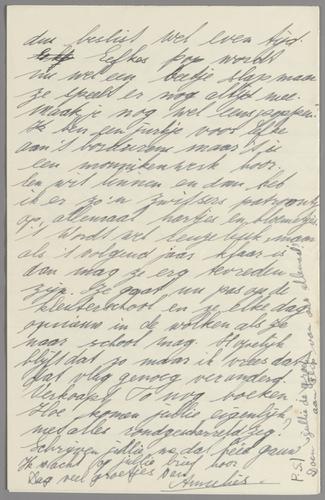 dus beslist wel even tijd.
Eefkes pop wordt
nu wel een beetje slap, maar
ze speelt er nog altijd mee.
Maak je nog wel eens poppen?
Ik ben een jurkje voor Eefke
aan 't borduren maar 't is
een monnikenwerk hoor,
en wit linnen en dan heb
ik er zo'n Zwitsers patroontje
op, allemaal hartjes en bloemetjes.
't Wordt wel leuk, maar
als 't volgend jaar klaar is
dan mag ze erg tevreden
zijn. Ze gaat nu pas op de
kleuterschool en is elke dag
opnieuw in de wolken als ze
naar school mag. Hopelijk
blijft dat zo maar ik vrees dat
dat vlug genoeg verandert.
Verkoopt nog boeken.
Hoe komen jullie eigenlijk
met alles rondgewandeld zeg.
Schrijven jullie me dat eens gauw
Ik wacht op jullie brief hoor
Dag veel groetjes
Annelies.
P.S. jullie de groeten
van ons allemaal